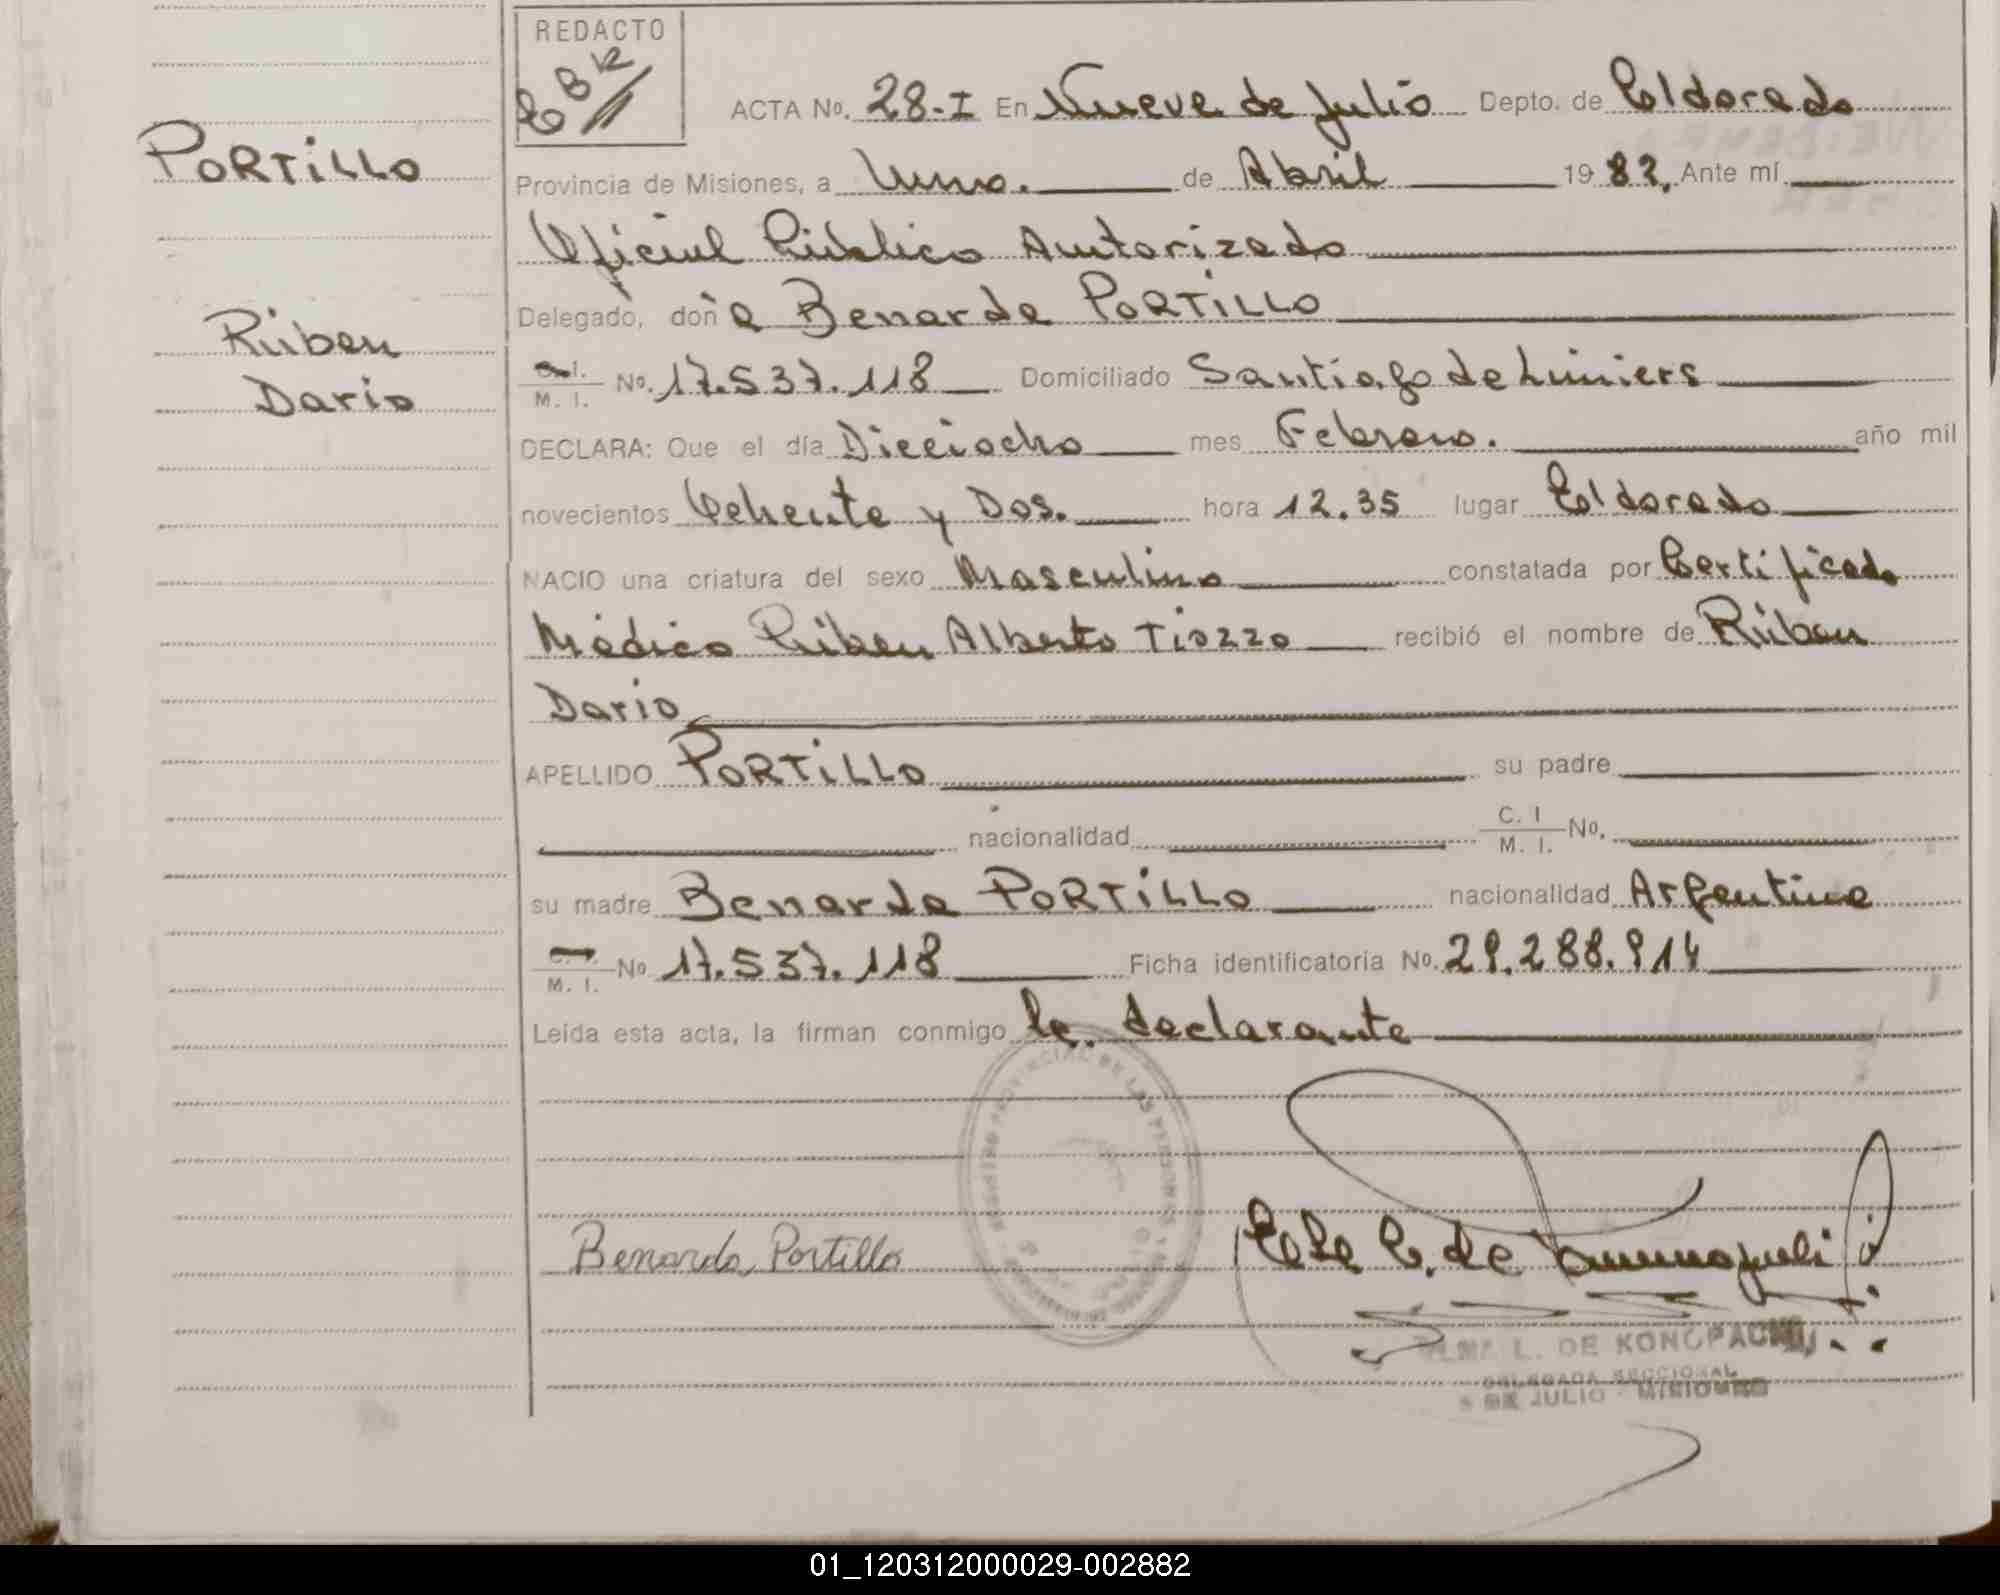 REDACTO
ACTA No. 28-I En Nueve de Julio Depto. de Eldorado
PORTiLLO
Provincia de Misiones, a Uno. de Abril 1982, Ante mí
Oficial Público Autorizado
Delegado, doña Benarda PORTiLLO
Rúben
M. I. No. 17.537.118 Domiciliado Santiago de Liniers
Dario
DECLARA: Que el día Dieciocho mes Febrero. año mil
novecientos Ochenta y Dos. hora 12.35 lugar Eldorado
NACIO una criatura del sexo Masculino constatada por Certificado
Médico Rúben Alberto Tiozzo recibió el nombre de Rúben
Dario
APELLIDO PORTiLLO su padre
nacionalidad C. I M. I. No.
su madre Benarda PORTiLLO nacionalidad Argentina
M. I. No 17.537.118 Ficha identificatoria No. 29.288.914
Leída esta acta, la firman conmigo la declarante
Benarda Portillo
L. DE KONOPACKI
DELEGADA SECCIONAL
9 DE JULIO - MISIONES
01_120312000029-002882